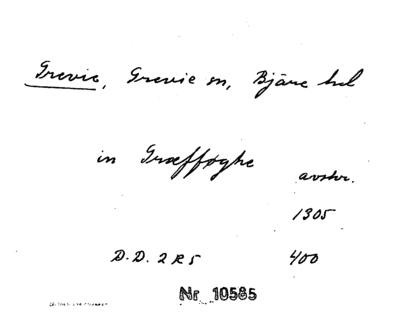 Grevie, Grevie sn, Bjäre hd
in Græfføghe
avskr.
1305
D.D. 2 R 5 400
Nr 10585